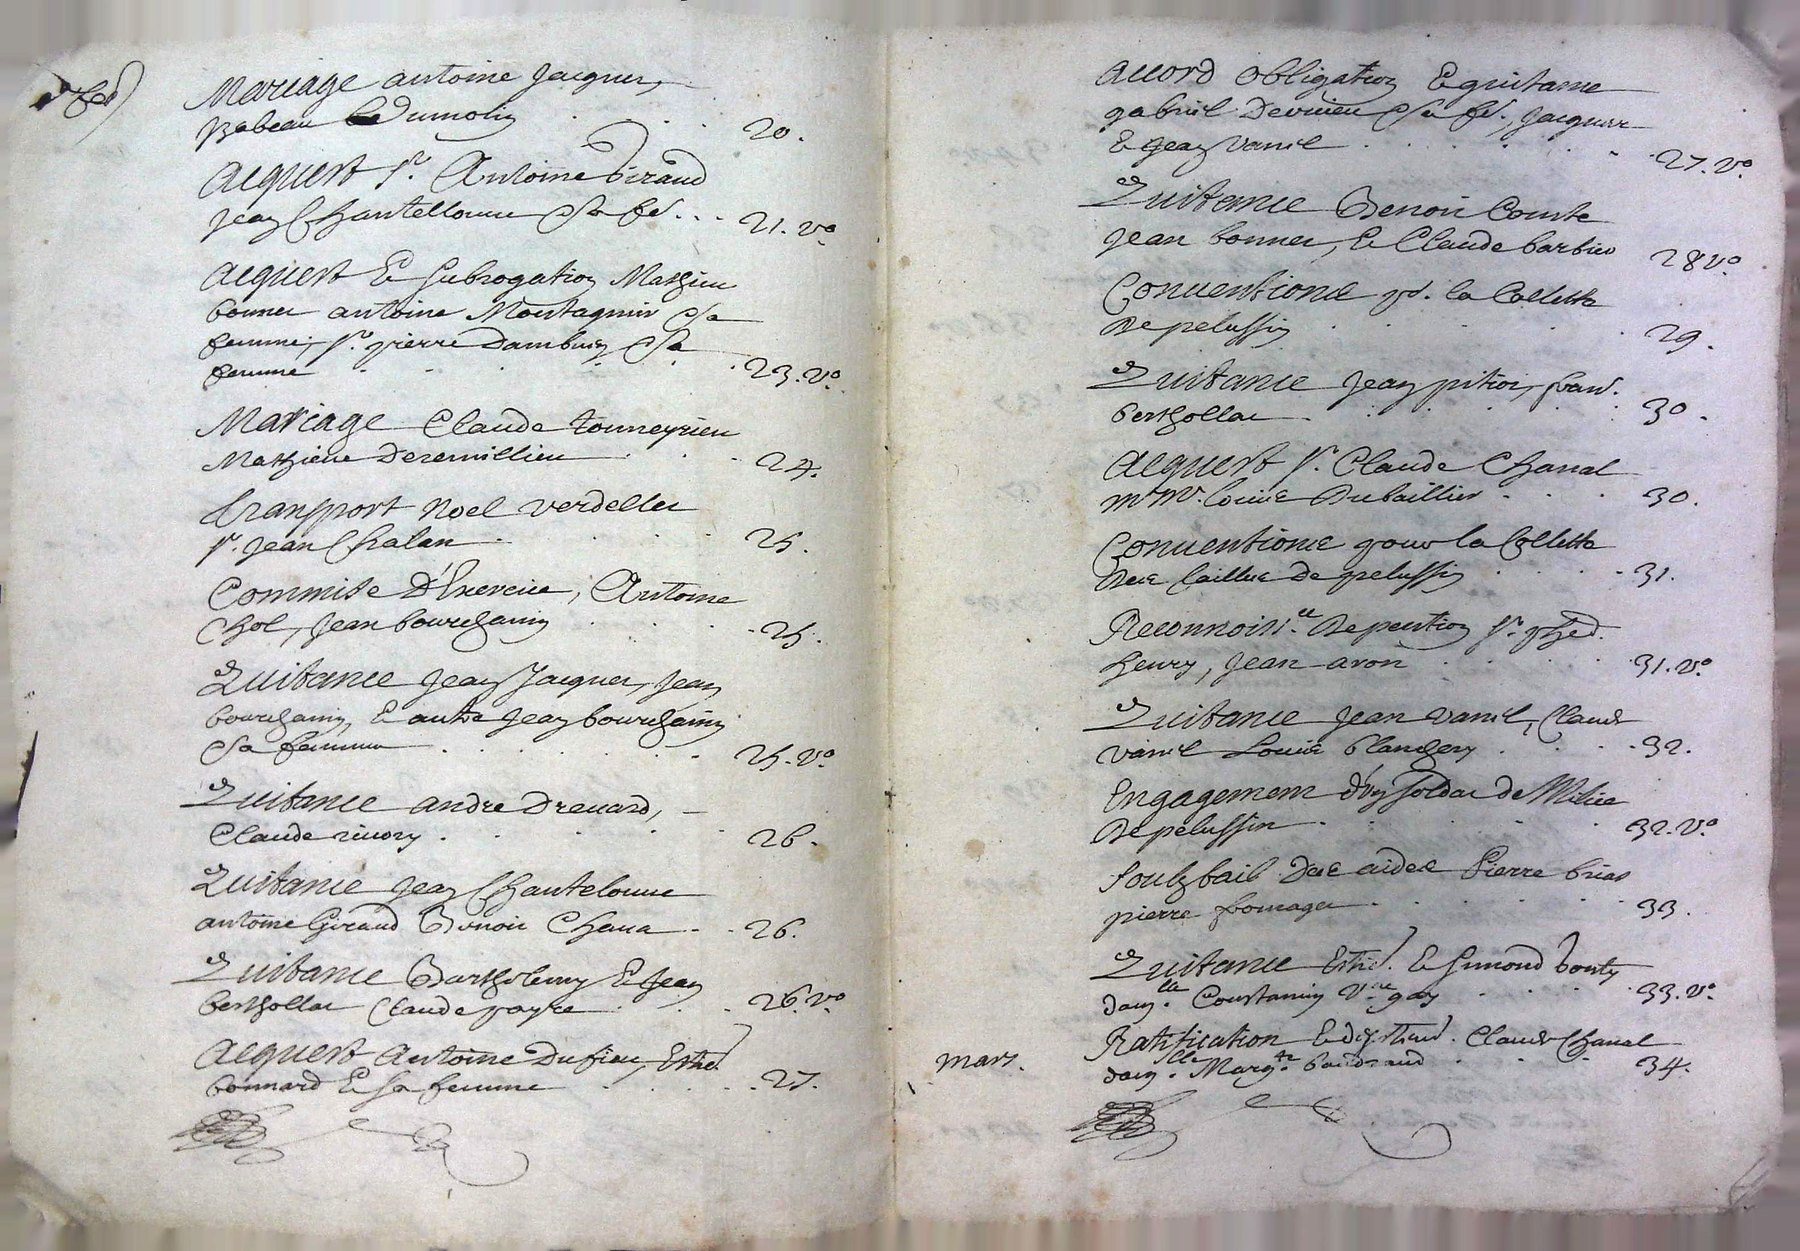 Mariage antoine Jacquier,
Isabeau Dumolin . . . 20.
Acquest Sr. Antoine Giraud
Jean Chantelloune & sa fe. . . . 21. vo.
Acquest & subrogation Mathieu
bonnet antoine Montagnier & sa
femme, Sr. pierre Dambuin & sa
femme . . . . . 23. vo.
Mariage Claude tonneyrieu
Mathieue Deremillieu . . . 24.
transport Noel verdellet
Sr. Jean Chalan . . . . 25.
Commise d'Exercice, Antoine
Chol, Jean bourchanin . . . . 25.
Quitance Jean Jacquier, Jean
bourchanin, & autre Jean bourchanin
& sa femme . . . . . 25. vo.
Quitance andre Drevard, -
Claude rivory . . . . . 26.
Quitance Jean Chanteloune
antoine Giraud Benoit Chana . . 26.
Quitance Barthelemy & Jean
berthollat Claude payre . . . 26. vo.
Acquest Antoine Dufieu, Estne.
bonnard & sa femme . . . . 27.
accord obligation & quitance
gabriel Devirieu & sa fe., Jacques
& Jean vanel . . . . . . 27. vo.
Quitance Benoit Comte
Jean bonnet, & Claude barbier 28 vo.
Conventions pr. la Collette
de pelussin . . . . . 29.
Quitance Jean pitiot, fran.
berthollat . . . . . 30.
Acquest Sr. Claude Chanal
Mr. Mr. Louis Dubaillier . . . . 30.
Conventions pour la Collette
des tailles de pelussin . . . . 31.
Reconnoisce. de pention Sr. phed.
henry, Jean avon . . . . . 31. vo.
Quitance Jean vanel, Claude
vanel Louis blanchery . . . . 32.
Engagement d'un soldat de Milice
de pelussin . . . . . 32. vo.
soulzbail des aides Pierre brias
pierre fromager . . . . . 33.
Quitance Estne. & simond bonty
damlle. Constantin vve. gay . . . . 33. vo.
mars.
Ratification Claude Chanal
damlle. Margte. baudrand . . . . 34.